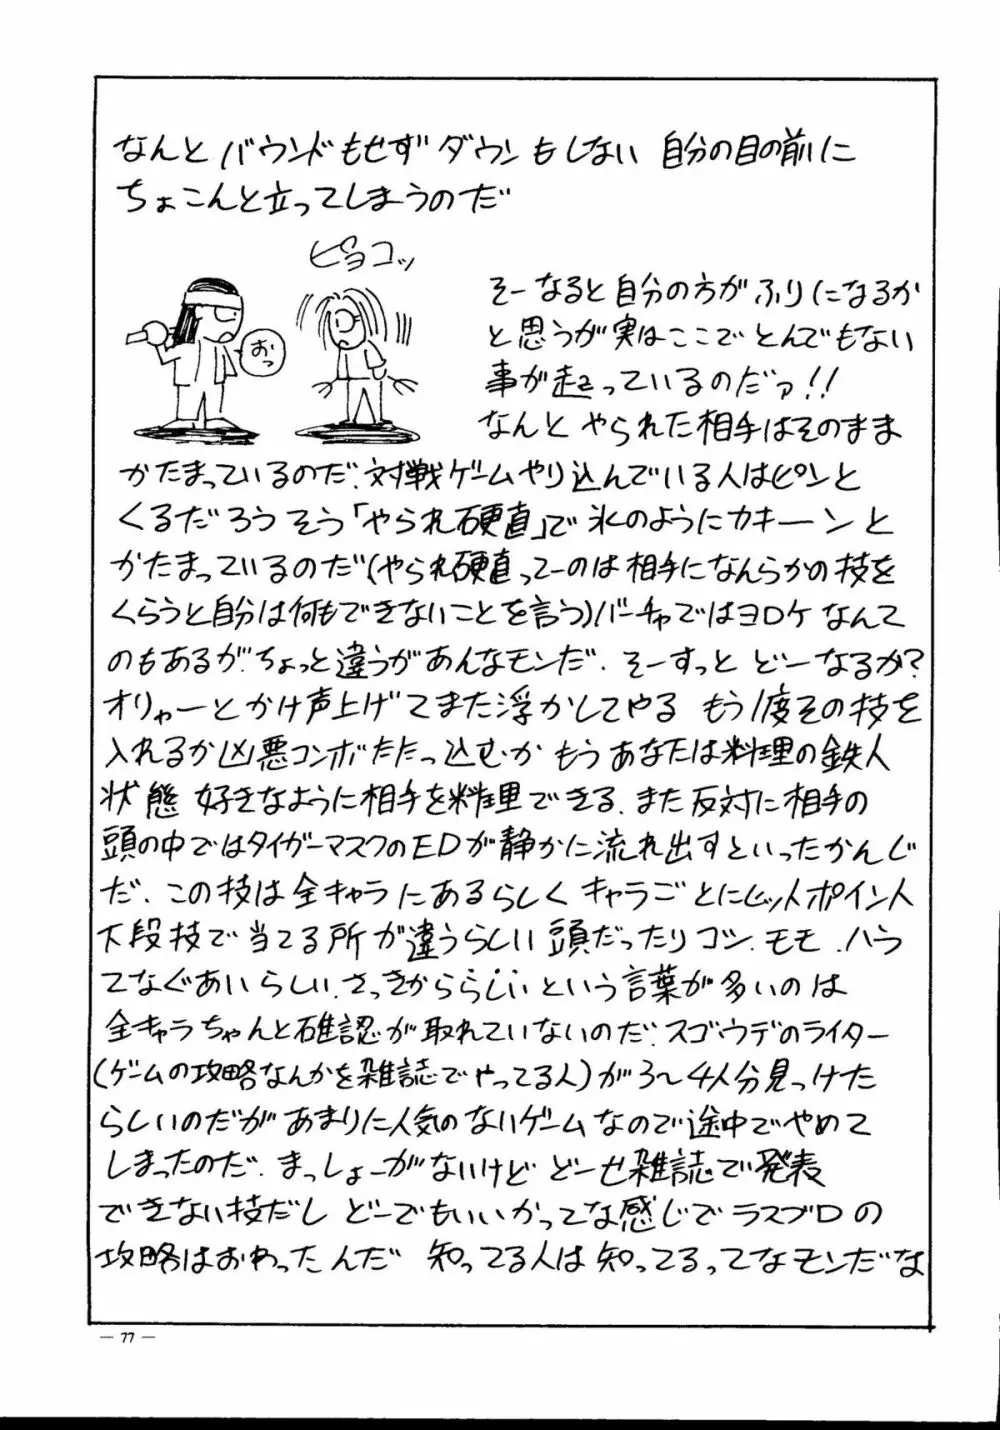 なんと バウンドもせず ダウンもしない 自分の目の前に
ちょこんと立ってしまうのだ
ピョコッ
おっ
そーなると自分の方がふりになるか
と思うが実はここで とんでもない
事が起こっているのだァ!!
なんと やられた相手はそのまま
かたまっているのだ.対戦ゲームやり込んでいる人はピンと
くるだろう そう「やられ硬直」で氷のようにカキーンと
かたまっているのだ(やられ硬直ってーのは相手になんらかの技を
くらうと自分は何もできないことを言う)バーチャではヨロケなんて
のもあるが.ちょっと違うがあんなモンだ.そーすっと どーなるか?
オリャーとかけ声上げてまた浮かしてやる もう1度その技を
入れるか凶悪コンボたたっ込むか もうあなたは料理の鉄人
状態 好きなように相手を料理できる.また反対に相手の
頭の中ではタイガーマスクのEDが静かに流れ出すといったかんじ
だ.この技は全キャラにあるらしくキャラごとにヒットポイント
下段技で当てる所が違うらしい 頭だったりコシ.モモ.ハラ
てなぐあいらしい.さっきかららしいという言葉が多いのは
全キャラちゃんと確認が取れていないのだ.スゴウデのライター
(ゲームの攻略なんかを雑誌でやってる人)が3〜4人分見つけた
らしいのだが あまりに人気のないゲームなので途中でやめて
しまったのだ.まっしょーがないけど どーせ雑誌で発表
できない技だし どーでもいいかってな感じで ラスブロの
攻略はおわったんだ 知ってる人は知ってるってなモンだな
— 77 —